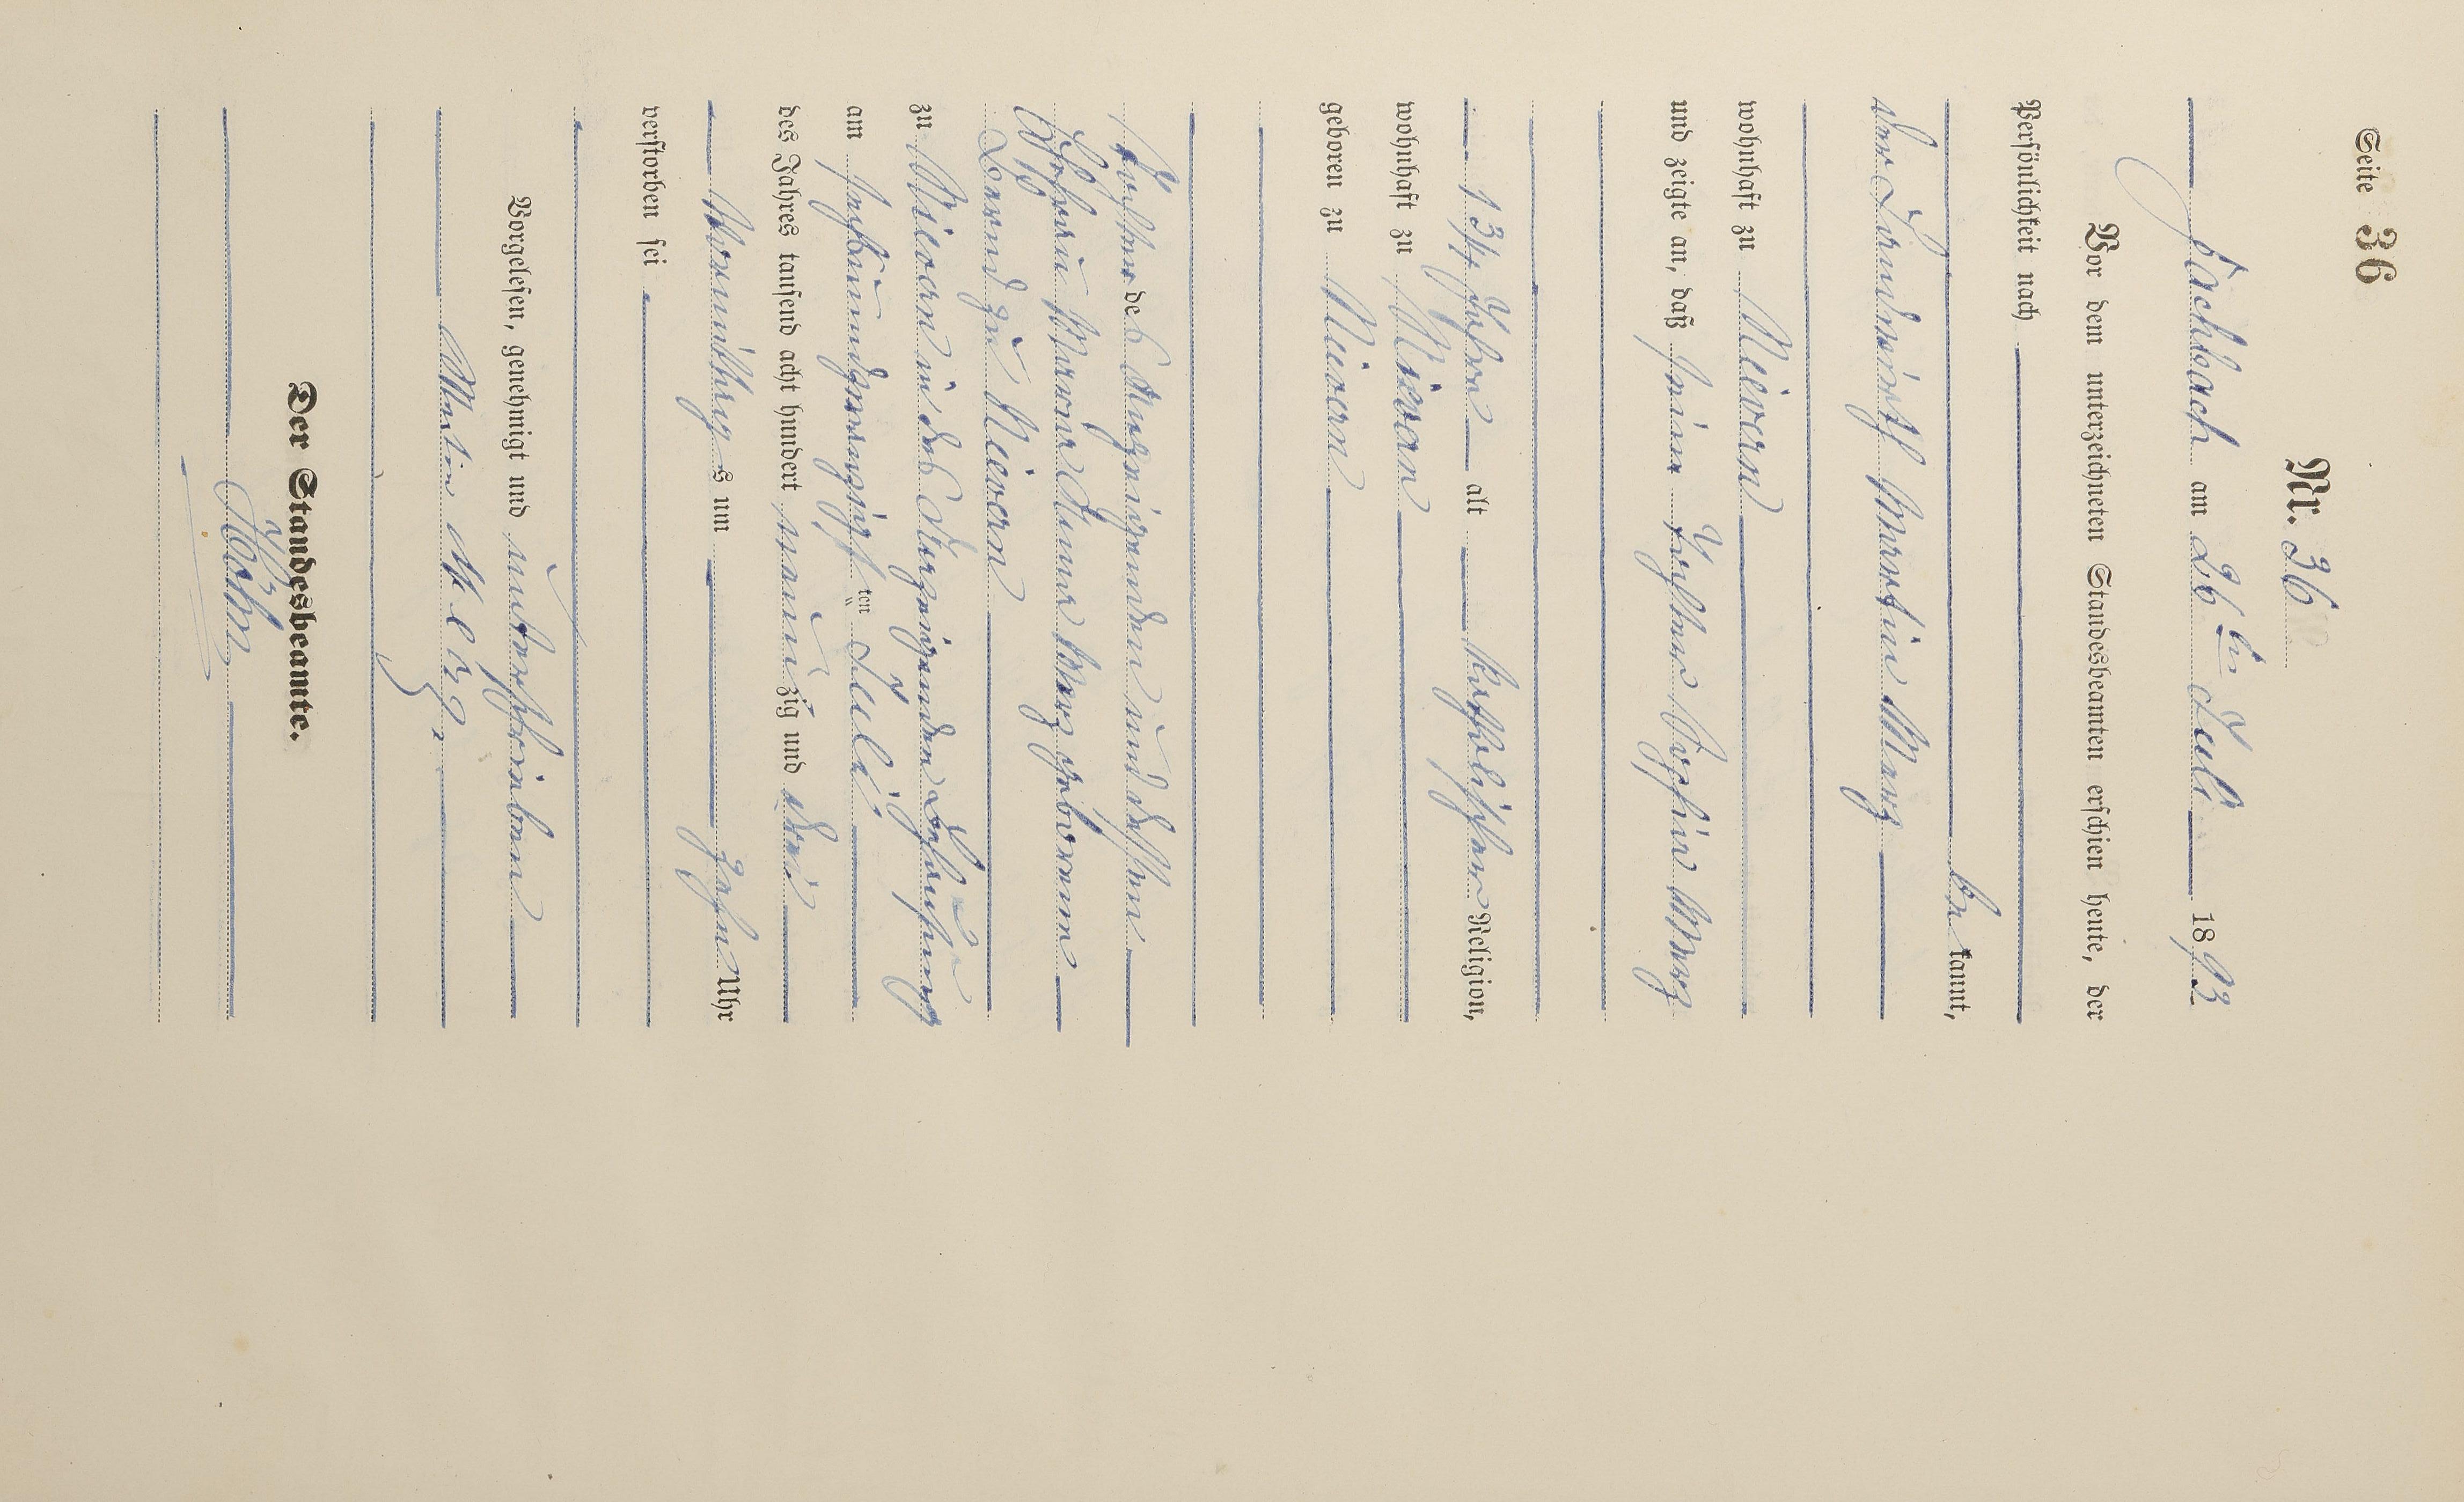 Seite 36
Nr. 36
Fachbach am 26ten Juli 1893
Vor dem unterzeichneten Standesbeamten erschien heute, der
Persönlichkeit nach
be kannt,
der Landwirth Martin Merz
wohnhaft zu Nievern
und zeigte an, daß seine Tochter Sophie Merz
13 Jahre alt katholischer Religion,
wohnhaft zu Nievern
geboren zu Nievern
Tochter des Anzeigenden und dessen
Ehefrau Maria Anna Merz geborenen
zu Nievern
zu Nievern in des Anzeigenden Behausung
am sechsundzwanzigsten ten Juli
des Jahres tausend acht hundert neunzig und drei
Vormittags um zehn Uhr
verstorben sei
Vorgelesen, genehmigt und unterschrieben
Martin Merz.
Der Standesbeamte.